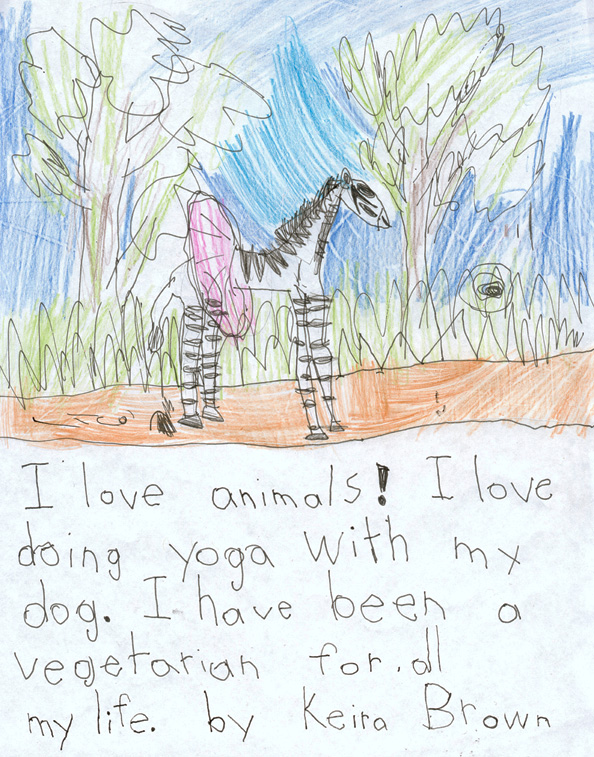 I love animals! I love
doing yoga with my
dog. I have been a
vegetarian for.all
my life. by Keira Brown